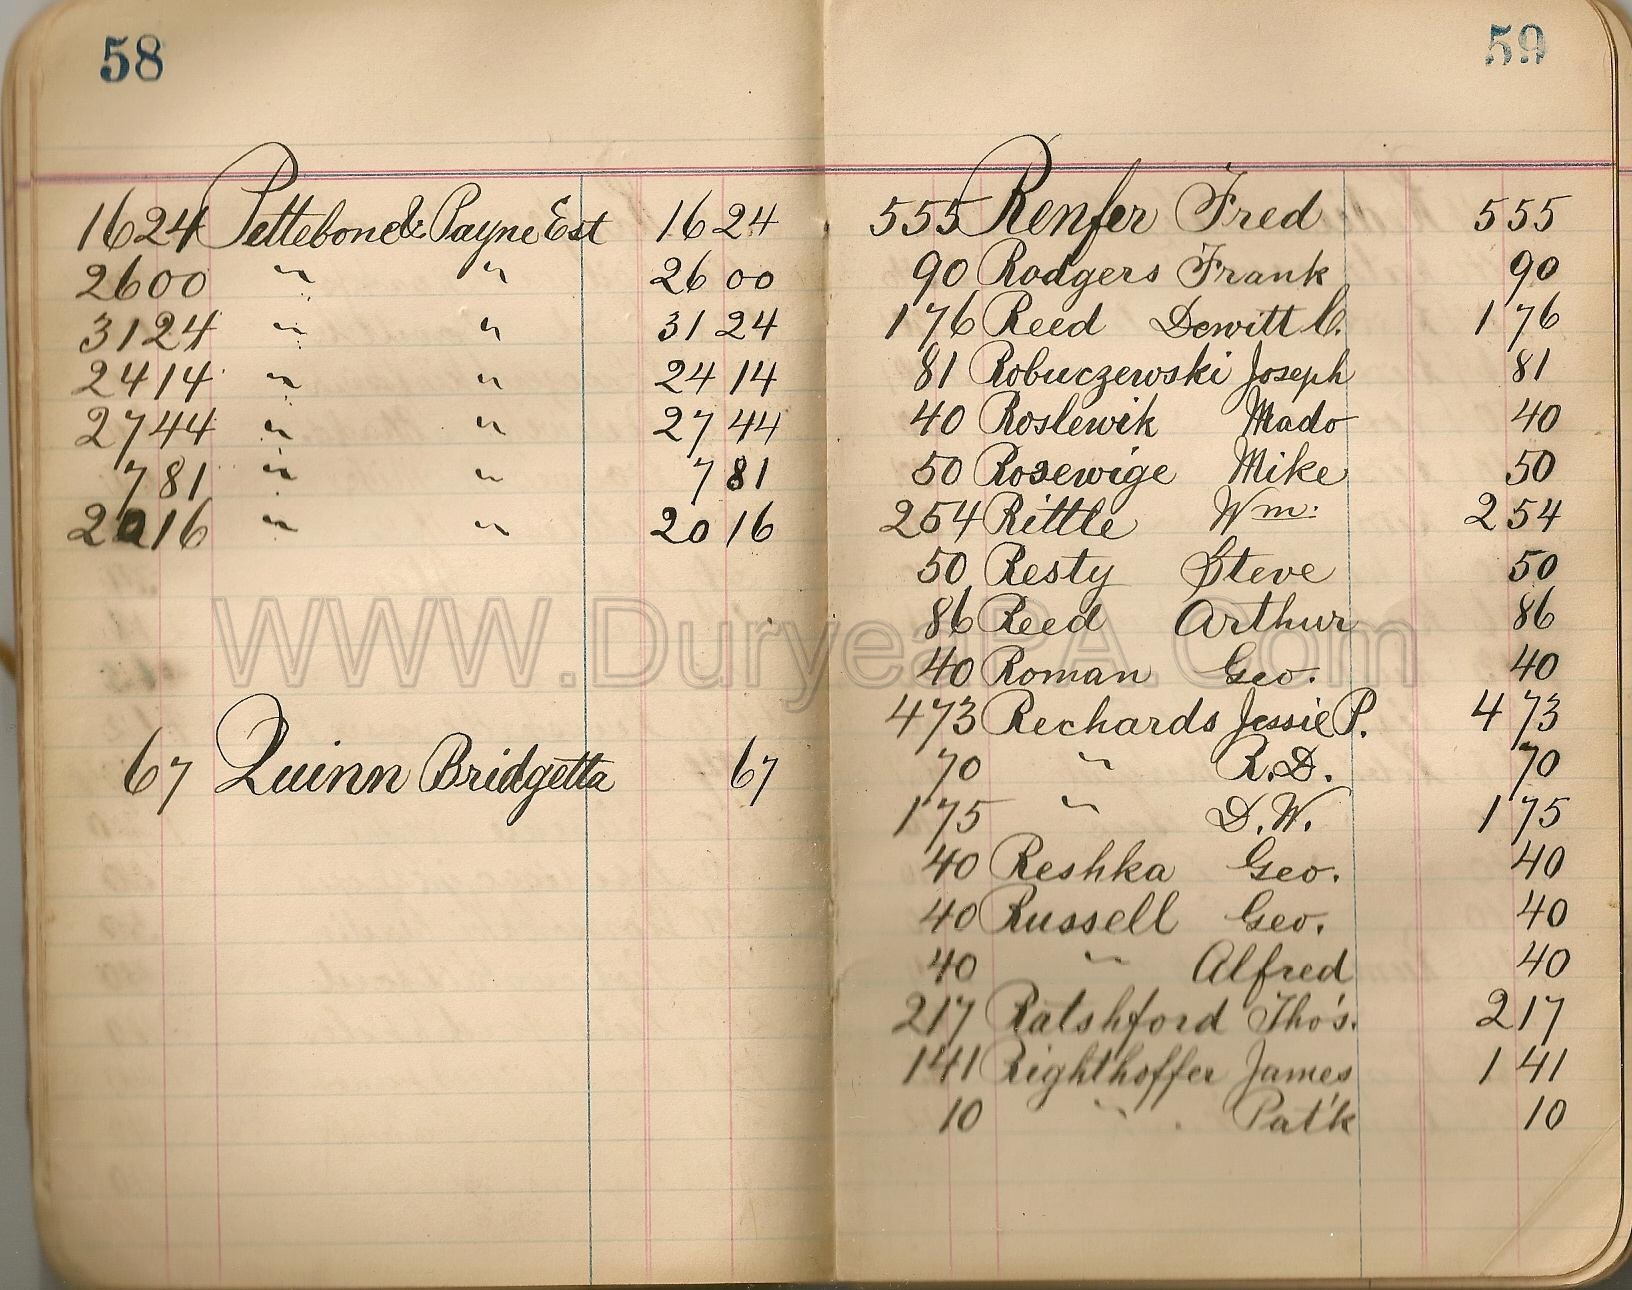 58
1624 Pettebone & Payne Est 16 24
2600 " " 26 00
3124 " " 31 24
2414 " " 24 14
2744 " " 27 44
781 " " 7 81
2016 " " 20 16
67 Quinn Bridgetta 67
59
555 Renfer Fred 5 55
90 Rodgers Frank 90
176 Reed Dewitt C. 1 76
81 Robuczewski Joseph 81
40 Roslewik Mado 40
50 Rosewige Mike 50
254 Rittle Wm. 2 54
50 Resty Steve 50
86 Reed Arthur 86
40 Roman Geo. 40
473 Rechards Jessie P. 4 73
70 " R.D. 70
175 " D.W. 1 75
40 Reshka Geo. 40
40 Russell Geo. 40
40 " Alfred 40
217 Ratshford Tho's. 2 17
141 Righthoffer James 1 41
10 " Pat'k 10
WWW.DuryeaPA.Com